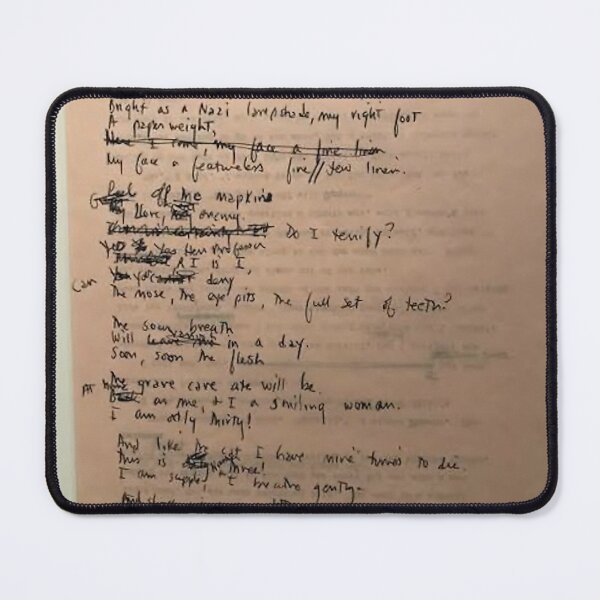 Bright as a Nazi lampshade, my right foot
A paperweight,
Here I come, my face a fine linen
My face a featureless fine // Jew linen.
Peel off the napkin
enemy.
Do I terrify?
Yes Yes Herr Professor
It is I,
Can you deny
The nose, the eye pits, the full set of teeth?
The sour breath
Will vanish in a day.
Soon, soon the flesh
The grave cave ate will be
At home on me, & I a smiling woman.
I am only thirty!
And like the cat I have nine times to die.
This is Number Three!
I am supple, I breathe gently-
And